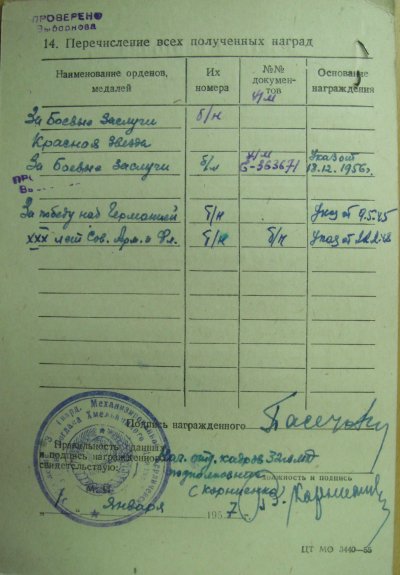 ПРОВЕРЕНО
Выборнова
14. Перечисление всех полученных наград
Наименование орденов, медалей
Их номера
№№ документов
Основание награждения
У/м
За Боевые Заслуги б/н
Красная Звезда
За Боевые Заслуги б/н У/м Б-363671 Указ от 18.12.1956г.
За победу над Германией б/н Указ от 9.5.45
XXX лет Сов. Арм. и Фл. б/н б/н Указ от
Подпись награжденного
Правильность данных
и подпись награжденного
свидетельствую:
Нач. отд. кадров 32
подполковник
должность и подпись
Скорниенко
М. П.
января 1957 г.
ЦТ МО 3440—55